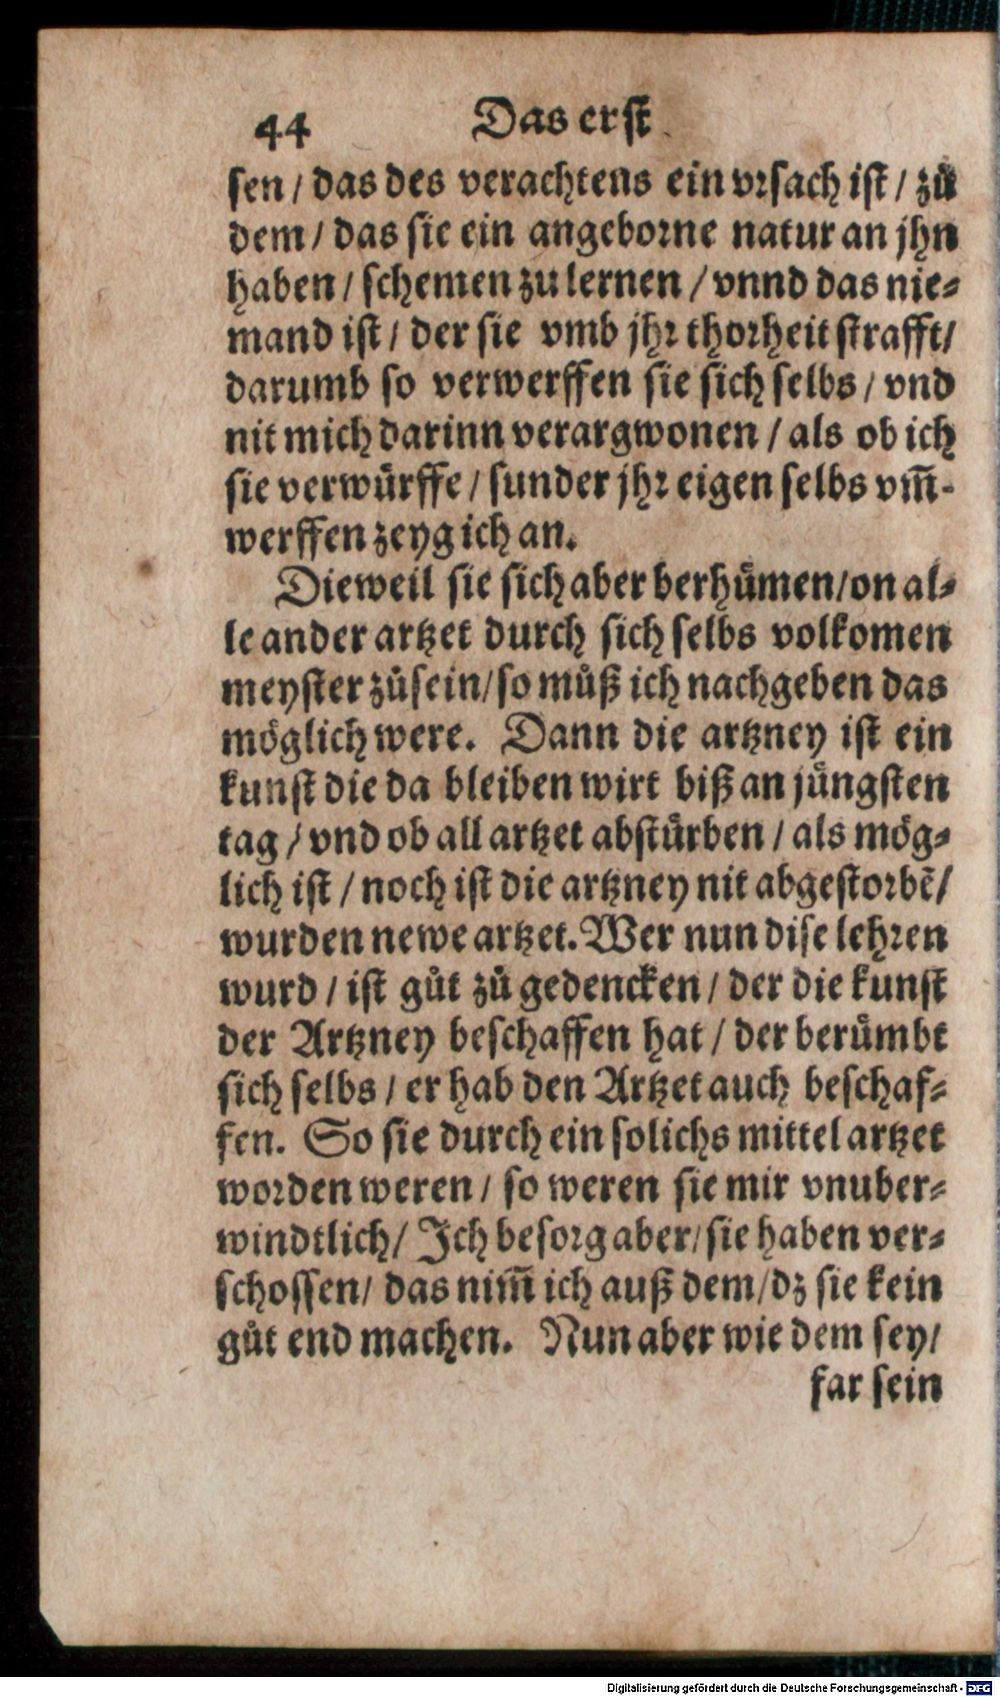 44 Das erst
sen / das des verachtens ein vrsach ist / zů
dem / das sie ein angeborne natur an jhn
haben / schemen zu lernen / vnnd das nie⸗
mand ist / der sie vmb jhr thorheit strafft /
darumb so verwerffen sie sich selbs / vnd
nit mich darinn verargwonen / als ob ich
sie verwürffe / sunder jhr eigen selbs vm̃-
werffen zeyg ich an.
Dieweil sie sich aber berhůmen / on al⸗
le ander artzet durch sich selbs volkomen
meyster zůsein / so můß ich nachgeben das
möglich were. Dann die artzney ist ein
kunst die da bleiben wirt biß an jüngsten
tag / vnd ob all artzet abstürben / als mög⸗
lich ist / noch ist die artzney nit abgestorbẽ /
wurden newe artzet. Wer nun dise lehren
wurd / ist gůt zů gedencken / der die kunst
der Artzney beschaffen hat / der berůmbt
sich selbs / er hab den Artzet auch beschaf⸗
fen. So sie durch ein solichs mittel artzet
worden weren / so weren sie mir vnuber⸗
windtlich / Ich besorg aber / sie haben ver⸗
schossen / das nim̃ ich auß dem / dz sie kein
gůt end machen. Nun aber wie dem sey /
far sein
Digitalisierung gefördert durch die Deutsche Forschungsgemeinschaft - DFG